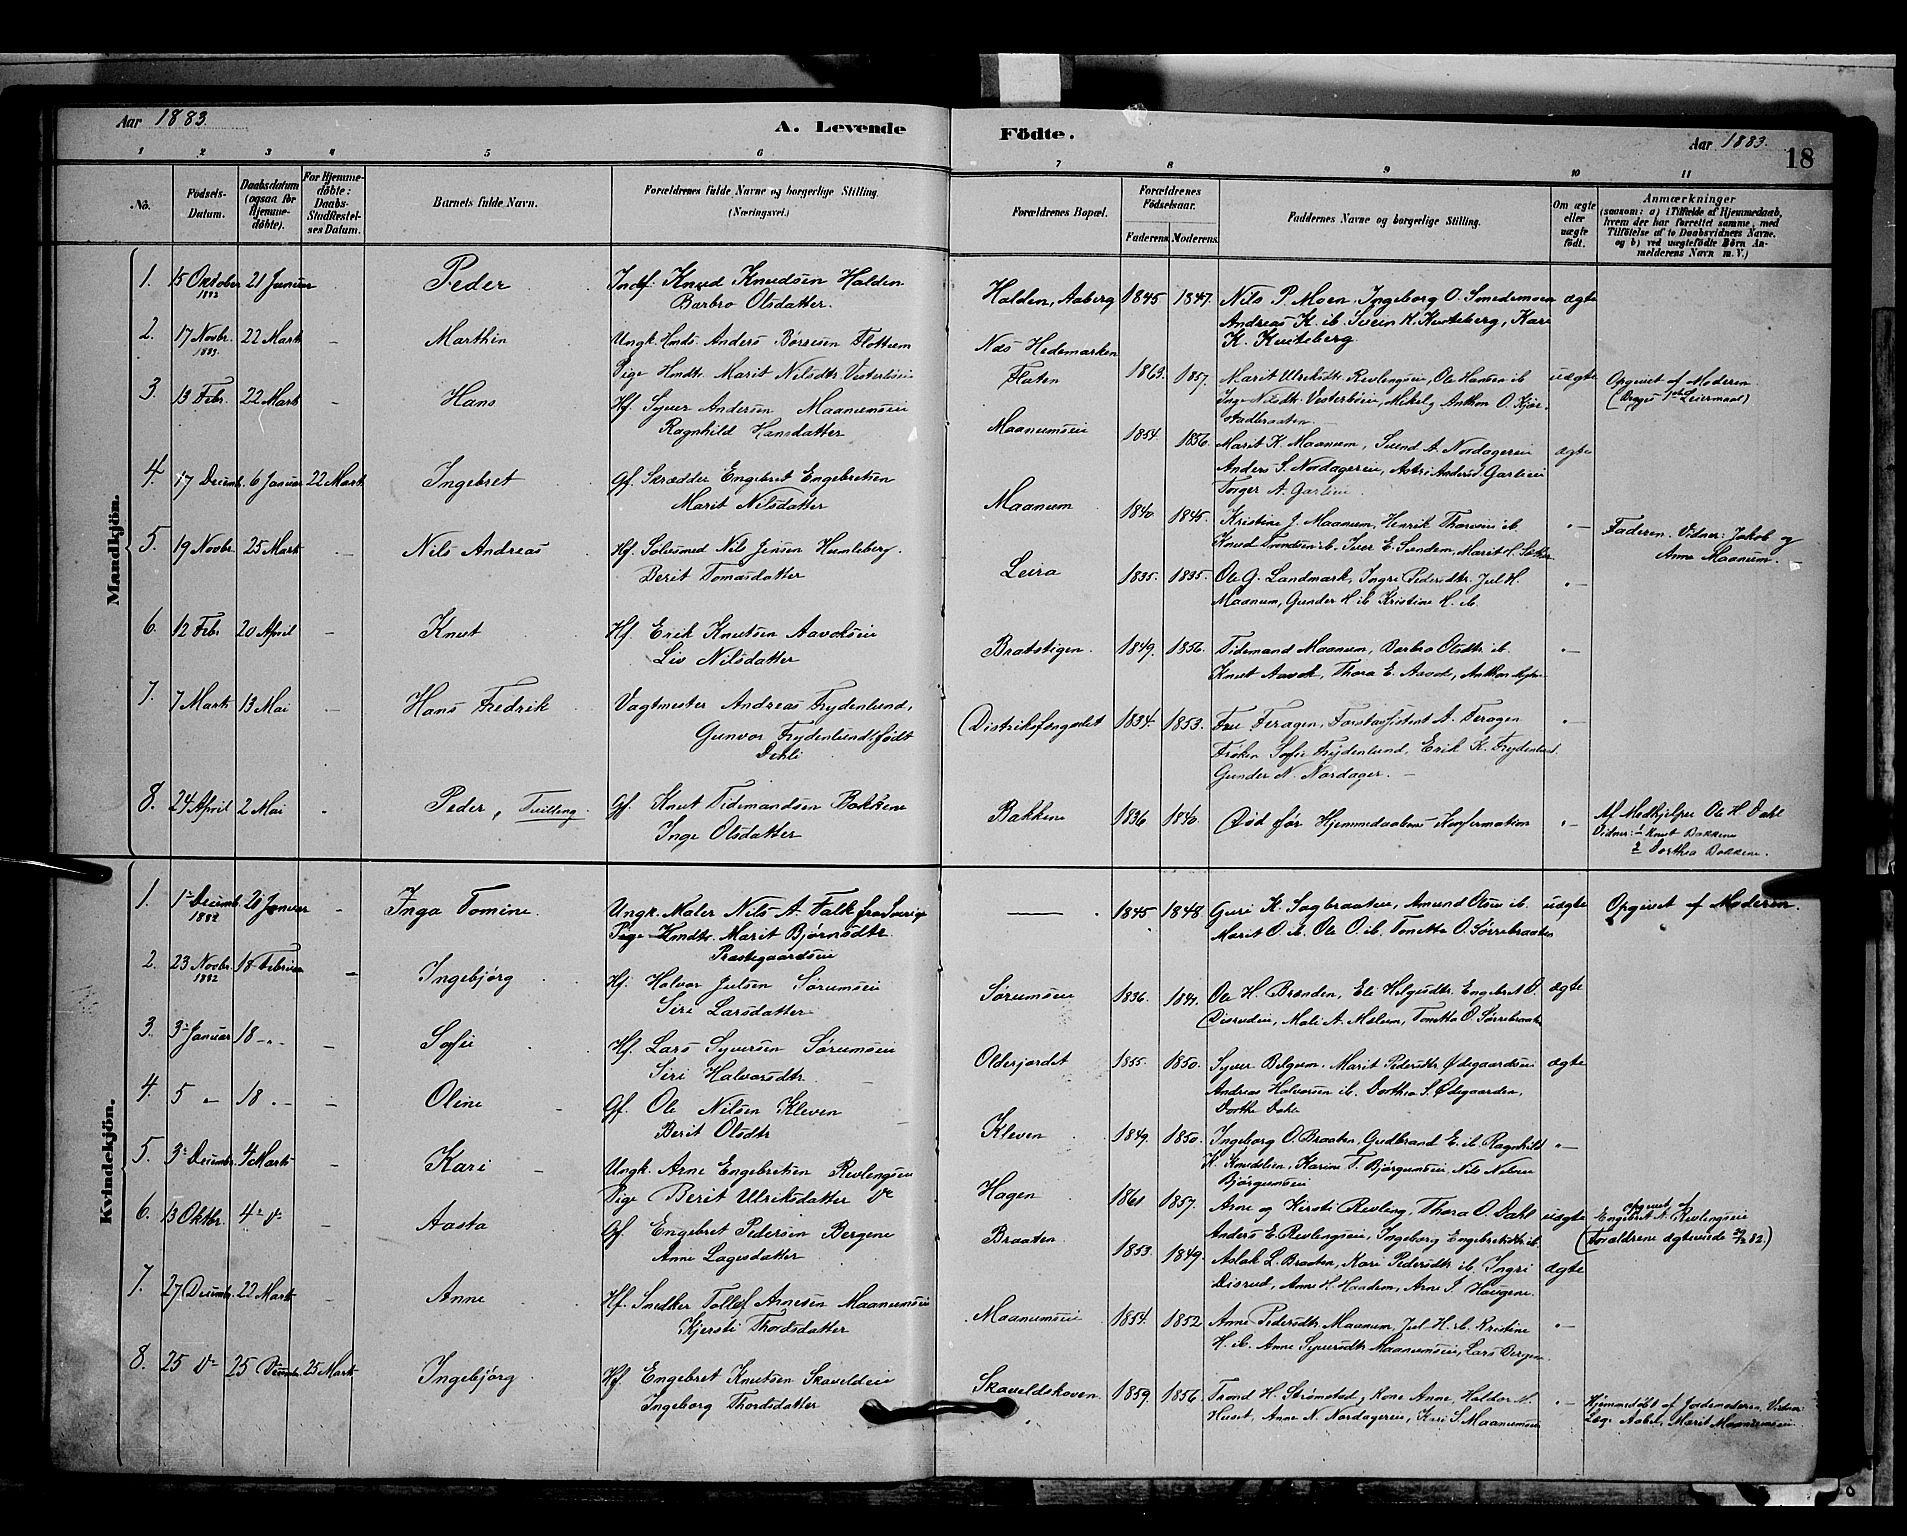 Aar 1883.
A. Levende Födte.
Aar 1883.
18
1 2 3 4 5 6 7 8 9 10 11
No.
Födsels-Datum.
Daabsdatum (ogsaa for Hjemmedöbte).
For Hjemmedöbte: Daabs-Stadfæstelses Datum.
Barnets fulde Navn.
Forældrenes fulde Navne og borgerlige Stilling.
(Næringsvei.)
Forældrenes Bopæl.
Forældrenes Födselsaar.
Faderens. Moderens.
Faddernes Navne og borgerlige Stilling.
Om ægte eller uægte födt.
Anmærkninger
(saasom: a) i Tilfælde af Hjemmedaab,
hvem der har forrettet samme, med
Tilföielse af to Daabsvidners Navne.
og b) ved uægtefödte Börn An-
melderens Navn m. V.)
Mandkjön.
1. 15 Oktober 1882 21 Januar Peder Indf. Knud Knudsen Halden
Barbro Olsdatter.
Halden, Aaberg 1845 1847. Nils P. Moen, Ingeborg O. Smedemoen ægte
Andreas K. ib. Svein K. Kviteberg, Kari
K. Kviteberg
2. 17 Novbr. 1883. 22 Marts - Marthin Ungk. Anders Børresen Flottum
Pige Marit Nilsdtr. Vesterbøeie
Næs Hedemarken
Flaten 1863. 1857. Marit Ulriksdtr. Revlengseie, Ole Hansen ib. uægte Opgivet af Moderen.
Vesterbøeie, Mikel Anthon O. (Begges 1ste Leiermaal)
3. 13 Febr. 22 Marts - Hans Hf. Syver Andersen Maanumseie
Ragnhild Hansdatter
Maanumseie 1854. 1856. Marit K. Maanum, Svend A. Nordagereie ægte
Anders S. Nordagereie,
Torger A.
4. 17 Decemb. 6 Januar 22 Marts Ingebret Gf. Skrædder Engebret Engebretsen
Marit Nilsdatter
Maanum 1840. 1845. Kristine J. Maanum, Henrik ib. -"-
Knud Trondsen ib. Iver E. Sundem, Marit
Faderen. Vidner: Jakob og
Anne Maanum.
5. 19 Novbr. 25 Marts - Nils Andreas Hf. Nils Jensen Humleberg.
Berit Tomasdatter
Leira 1835. 1835. Ole G. Landmark, Ingri Pedersdtr. Jul H. -"-
Maanum, Gunder H. ib. Kristine H. ib.
6. 12 Febr. 20 April - Knut Hf. Erik Knutsen
Liv Nilsdatter
Bratstigen. 1849. 1856. Tidemand Maanum, Barbro Olsdtr. ib. -"-
Knut Thora E.
7. 7 Marts 13 Mai - Hans Fredrik Vagtmester Andreas Frydenlund,
Gunvor Frydenlund, født
Dehli
Distriktsfengslet 1834. 1853. Fru Feragen, Forstassistent A. Feragen -"-
Frøken Sofie Frydenlund, Erik K. Frydenlund
Gunder N. Nordager. -
8. 24 April 2 Mai Peder, Tvilling. Gf. Knut Tidemandsen Bakkene
Inge Olsdatter
Bakkene 1836 1840. Død før Hjemmedaabens Konfirmation -"- Af Medhjelper Ole H. Dahl
Vidner: 1 Knut Bakkene
2 Dorthea Bakkene.
Kvindekjön.
1. 1ste Decemb. 1882 Januar - Inga Tomine. Ungk. Maler Nils A. Falk fra Sverige
Pige Marit Bjørnsdtr.
Præstegaardseie
1845 1848. Guri K. Sagbraaten, Amund Olsen ib. uægte Opgivet af Moderen.
Marit O. ib. Ole O. ib. Tonetta O. Sørrebraaten
2. 23 Novbr. 1882 18 Februar - Ingebjørg Hf. Halvor Julsen Sørumseie
Siri Larsdatter
Sørumseie 1836. Ole H. Brænden, Eli Helgesdtr. Engebret O. ægte
Disrudeie, Mali A. Tonetta O. Sørrebraaten
3. 3die Januar 18 -"- - Sofie Hf. Lars Syversen Sørumseie
Siri Halvorsdtr.
Olderjordet 1855. 1850. Syver Belgum, Marit Pedersdtr. Ødegaardseie ægte
Andreas Halvorsen ib. Dorthea S. Ødegaarden,
Dorthe Dahl
4. 5 -"- 18 -"- - Oline Gf. Ole Nilsen Kleven
Berit Olsdtr
Kleven 1849. 1850. Ingeborg O. Braaten, Gudbrand E. ib. Ragnhild -"-
K. Karine T. Bjørgumseie Nils Nilsen
Bjørgumseie
5. 3die Decembr. 4 Marts - Kari Ungk. Arne Engebretsen Revlengseie
Pige Berit Ulriksdatter do
Hagen 1861 1857. Arne og Kirsti Revleng, Thora O. Dahl uægte
Anders E. Revlengseie, Ingeborg Engebretsdtr. ib.
opgivet af
Engebret A. Revlengseie
(Forældrene ægteviede 82)
6. 13 Oktbr. 4de do - Aasta Gf. Engebret Pedersen Bergene
Anne Lagesdatter
Braaten 1853. 1849. Aslak L. Braaten, Kari Pedersdtr. ib. Ingri ægte
Disrud, Anne H. Haadem, Arne I. Haugene.
7. 27 Decemb. 22 Marts - Anne Hf. Snedker Tollef Arnesen Maanumseie
Kjersti Thordsdatter
Maanumseie 1854. 1852 Anne Pedersdtr. Maanum, Jul H. ib. Kristine -"-
H. ib. Anne Syversdtr. Maanumseie, Lars Bergene
8. 25 do 25 Decemb. 25 Marts Ingebjørg Hf. Engebret Knutsen Skaveldeie
Ingeborg Thordsdatter
Skaveldskoven 1859. 1856. Trond H. Strømstad, Kone Anne, Haldor N. -"-
Huset, Anne N. Nordagereie, Kari S. Maanumseie
Hjemmedøbt af Jordmoderen, Vidner
Lage Marit Maanumseie